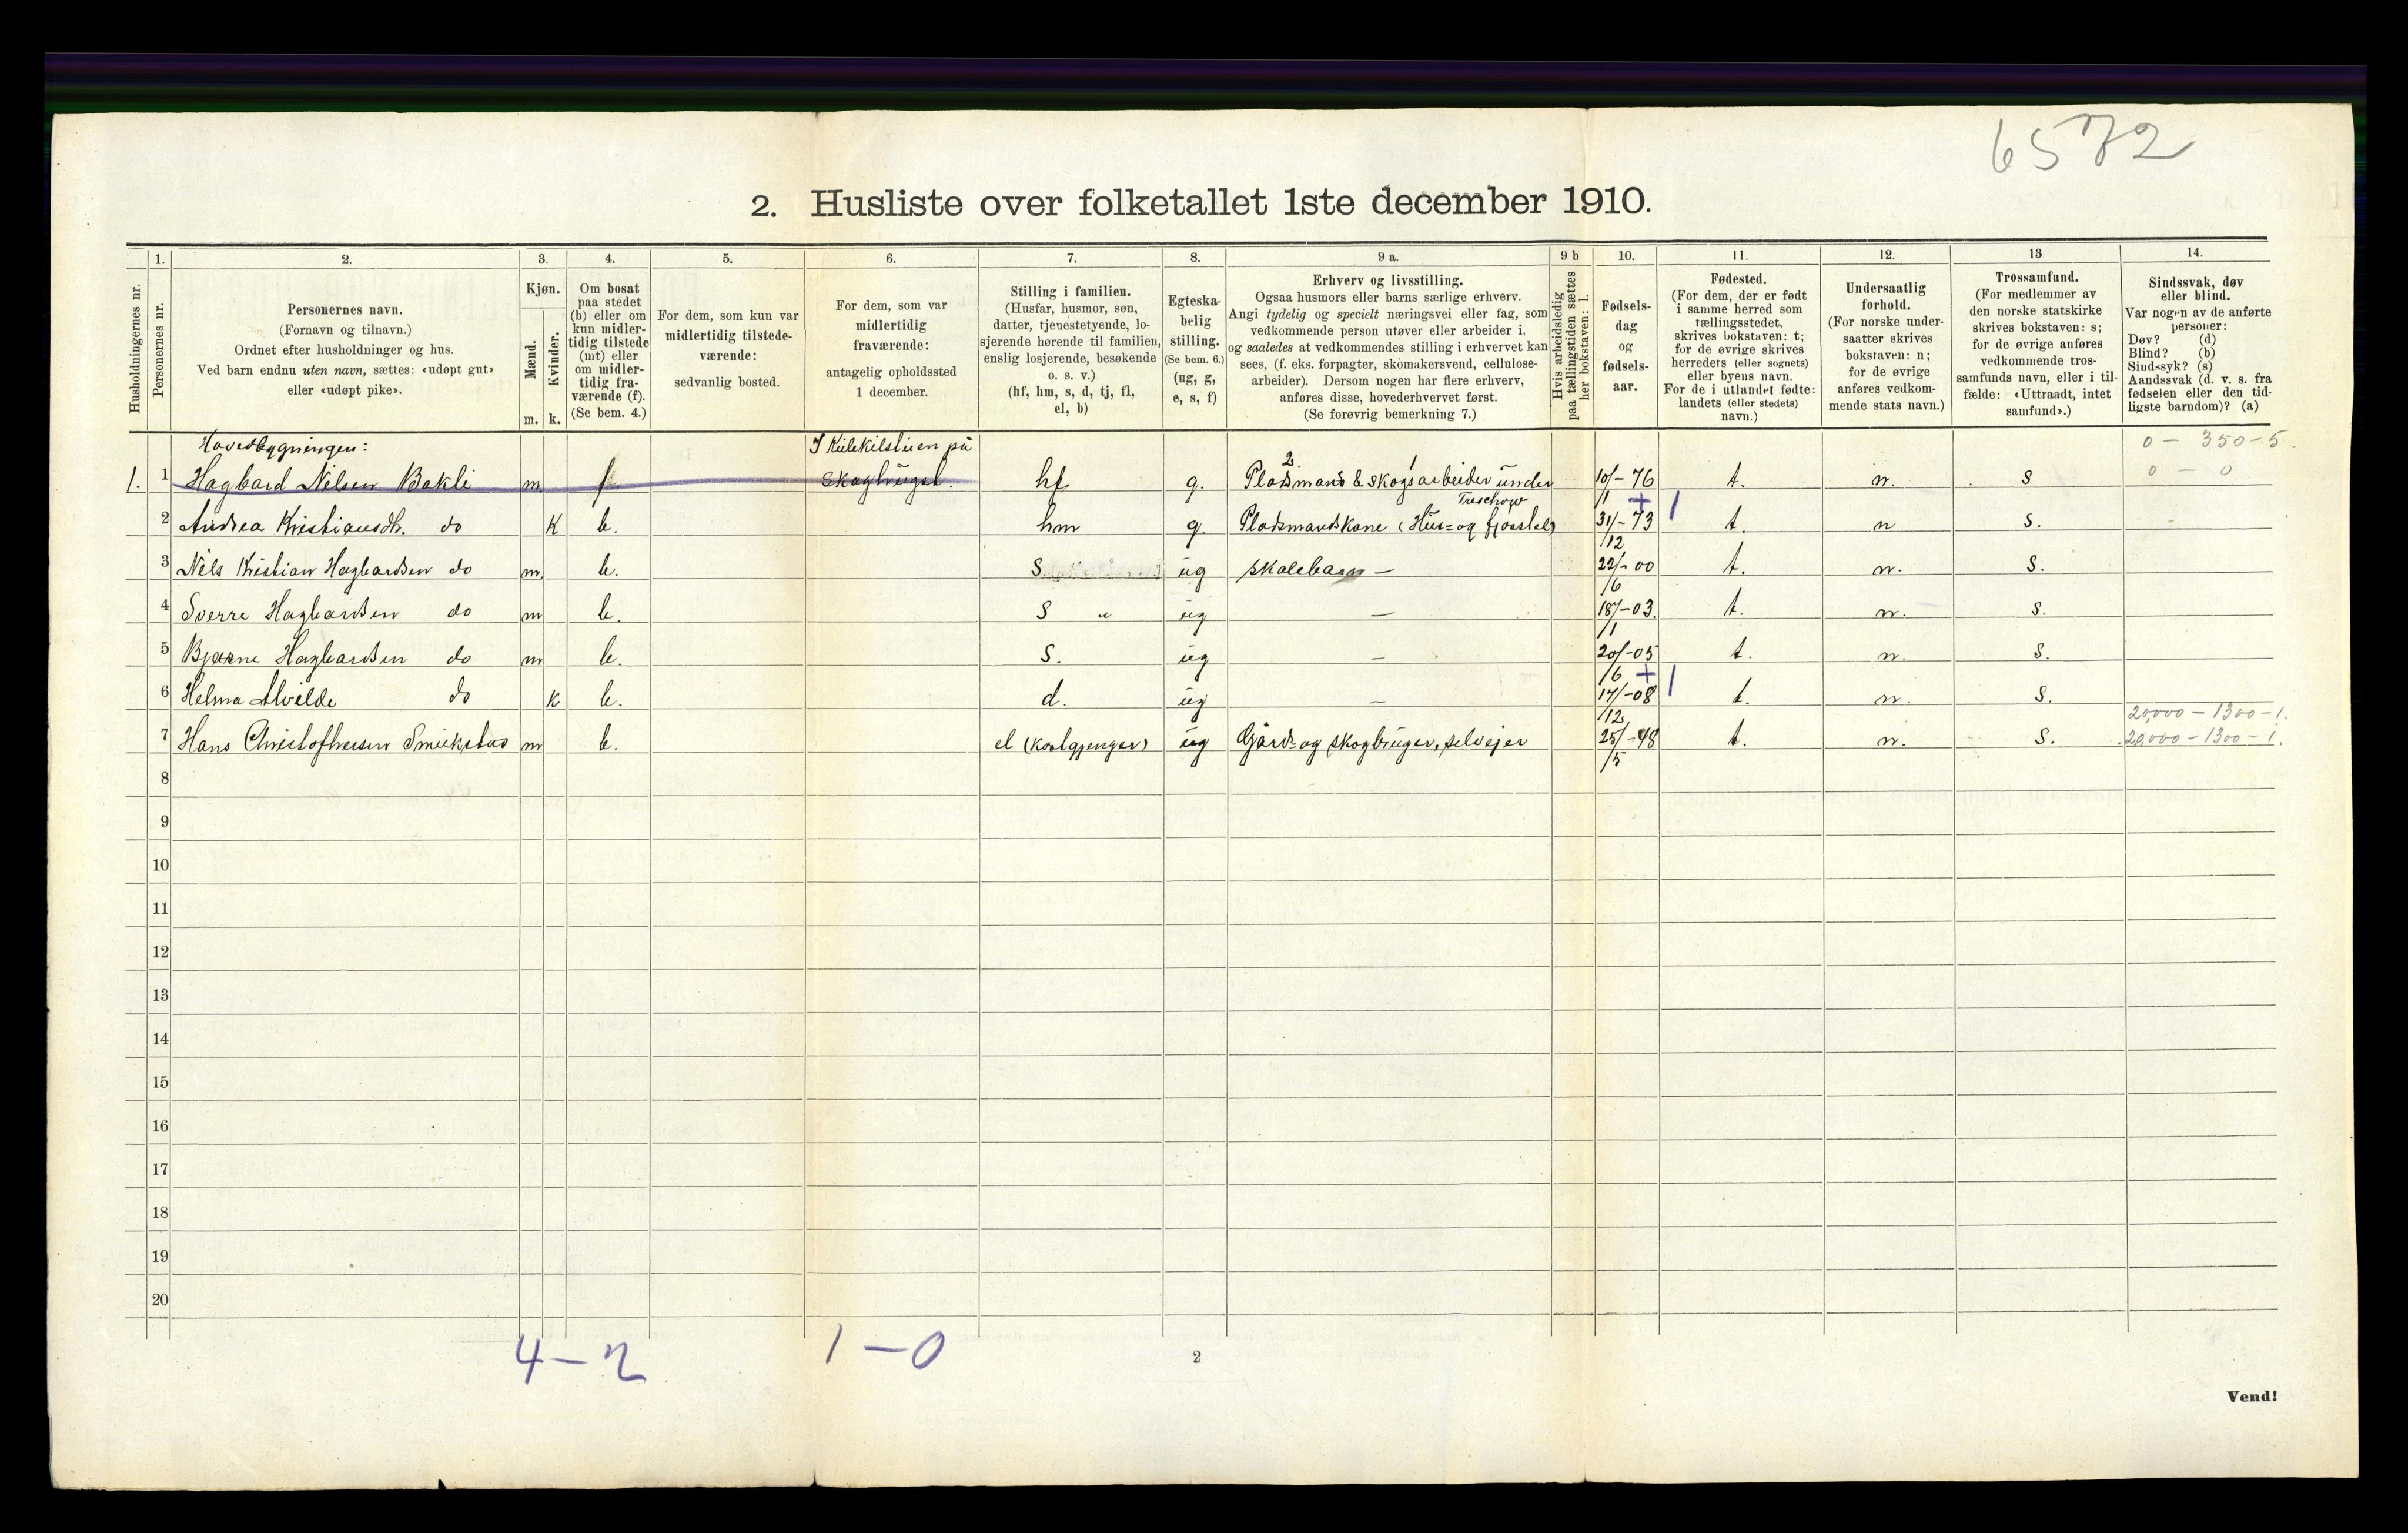 6572
2. Husliste over folketallet 1ste december 1910.
Husholdningernes nr.
1.
Personernes nr.
2.
Personernes navn.
(Fornavn og tilnavn.)
Ordnet efter husholdninger og hus.
Ved barn endnu uten navn, sættes: «udøpt gut»
eller «udøpt pike».
3.
Kjøn.
Mænd.
Kvinder.
m. k.
4.
Om bosat
paa stedet
(b) eller om
kun midler-
tidig tilstede
(mt) eller
om midler-
tidig fra-
værende (f).
(Se bem. 4.)
5.
For dem, som kun var
midlertidig tilstede-
værende:
sedvanlig bosted.
6.
For dem, som var
midlertidig
fraværende:
antagelig opholdssted
1 december.
7.
Stilling i familien.
(Husfar, husmor, søn,
datter, tjenestetyende, lo-
sjerende hørende til familien,
enslig losjerende, besøkende
o. s. v.)
(hf, hm, s, d, tj, fl,
el, b)
8.
Egteska-
belig
stilling.
(Se bem. 6.)
(ug, g,
e, s, f)
9 a.
Erhverv og livsstilling.
Ogsaa husmors eller barns særlige erhverv.
Angi tydelig og specielt næringsvei eller fag, som
vedkommende person utøver eller arbeider i,
og saaledes at vedkommendes stilling i erhvervet kan
sees, (f. eks. forpagter, skomakersvend, cellulose-
arbeider). Dersom nogen har flere erhverv,
anføres disse, hovederhvervet først.
(Se forøvrig bemerkning 7.)
9 b
Hvis arbeidsledig
paa tællingstiden sættes
her bokstaven: l.
10.
Fødsels-
dag
og
fødsels-
aar.
11.
Fødested.
(For dem, der er født
i samme herred som
tællingsstedet,
skrives bokstaven: t;
for de øvrige skrives
herredets (eller sognets)
eller byens navn.
For de i utlandet fødte:
landets (eller stedets)
navn.)
12.
Undersaatlig
forhold.
(For norske under-
saatter skrives
bokstaven: n;
for de øvrige
anføres vedkom-
mende stats navn.)
13
Trossamfund.
(For medlemmer av
den norske statskirke
skrives bokstaven: s;
for de øvrige anføres
vedkommende tros-
samfunds navn, eller i til-
fælde: «Uttraadt, intet
samfund».)
14.
Sindssvak, døv
eller blind.
Var nogen av de anførte
personer:
Døv? (d)
Blind? (b)
Sindssyk? (s)
Aandssvak (d. v. s. fra
fødselen eller den tid-
ligste barndom)? (a)
Hovedbygningen: I på 0 - 350-5.
1. 1 Hagbard Nilsen Bakli m f Skogbruget. hf g. 2 Pladsmand & 1 skogsarbeider under Treschow 10/1-76 t. n. s 0 - 0
2 Andrea Kristiansdtr. do K b. hm g. Pladsmandskone (Hus= og fjøsstel) 31/12-73 t n s.
3 Nils Kristian Hagbardsen do m. b. S ug skolebarn - 22/6-00 t. n. s.
4 Sverre Hagbardsen do m b. S " ug - 18/1-03. t. n. s.
5 Bjarne Hagbardsen do m b. S. ug - 20/6-05 t. n. s.
6 Helma Alvilde do k b. d. ug - 17/12-08 t. n. s.
20,000 - 1300 - 1.
7 Hans Christophersen m b. el (kostgjenger) ug Gård- og skogbruger, selvejer 25/5-48 t. n. s. 20,000 - 1300 - 1.
8
9
10
11
12
13
14
15
16
17
18
19
20
4 - 2 1 - 0
2
Vend!